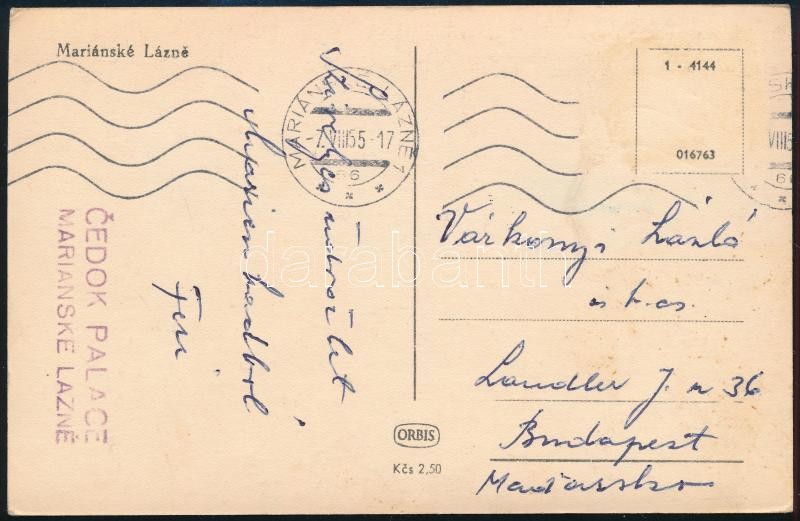 Mariánské Lázně
MARIÁNSKÉ LÁZNĚ 1
-7.VIII55-17
66
* * *
1 - 4144
016763
VIII5
66
üdvözlet
Marienbadból
Feri
Várkonyi László
és b. cs.
Landler J. u 36
Budapest
Maďarsko
ČEDOK PALACE
MARIANSKE LAZNĚ
ORBIS
Kčs 2,50
darabanth